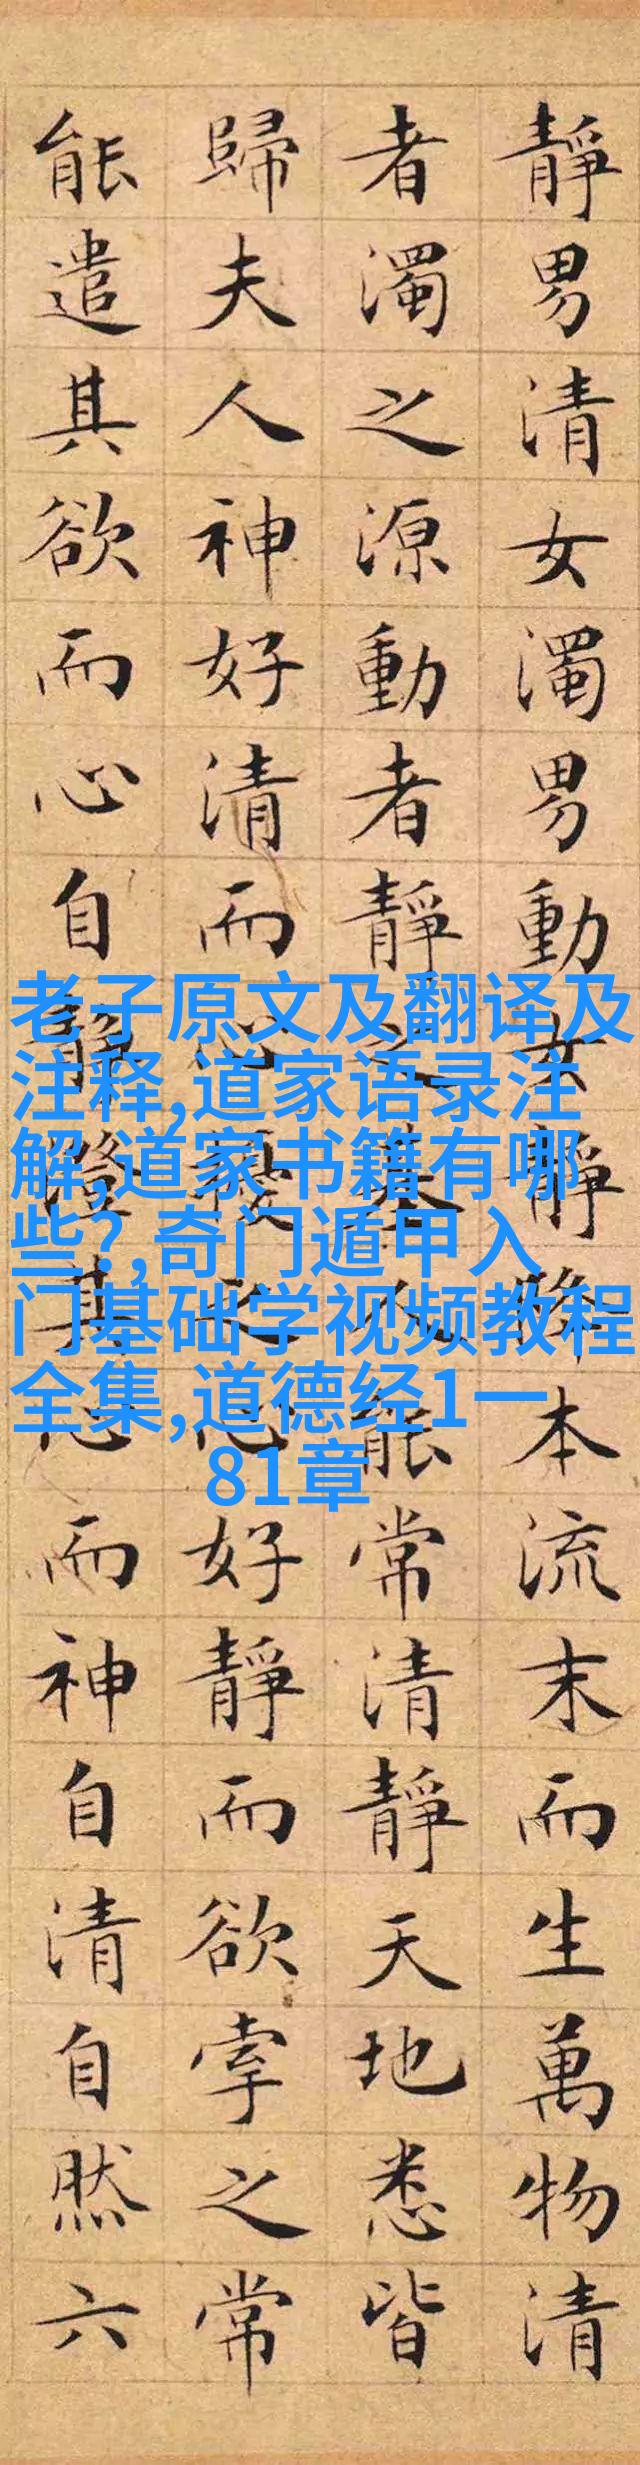 靜男清女濁男動女靜降本流末而生萬物清
者濁之源動者靜之基人能常清靜天地悉皆
歸夫人神好清而心擾之心好靜而欲牽之常
能遣其欲而心自靜澄其心而神自清自然六
老子原文及翻译及
注释,道家语录注
解,道家书籍有哪
些?,奇门遁甲入
门基础学视频教程
全集,道德经1一
81章